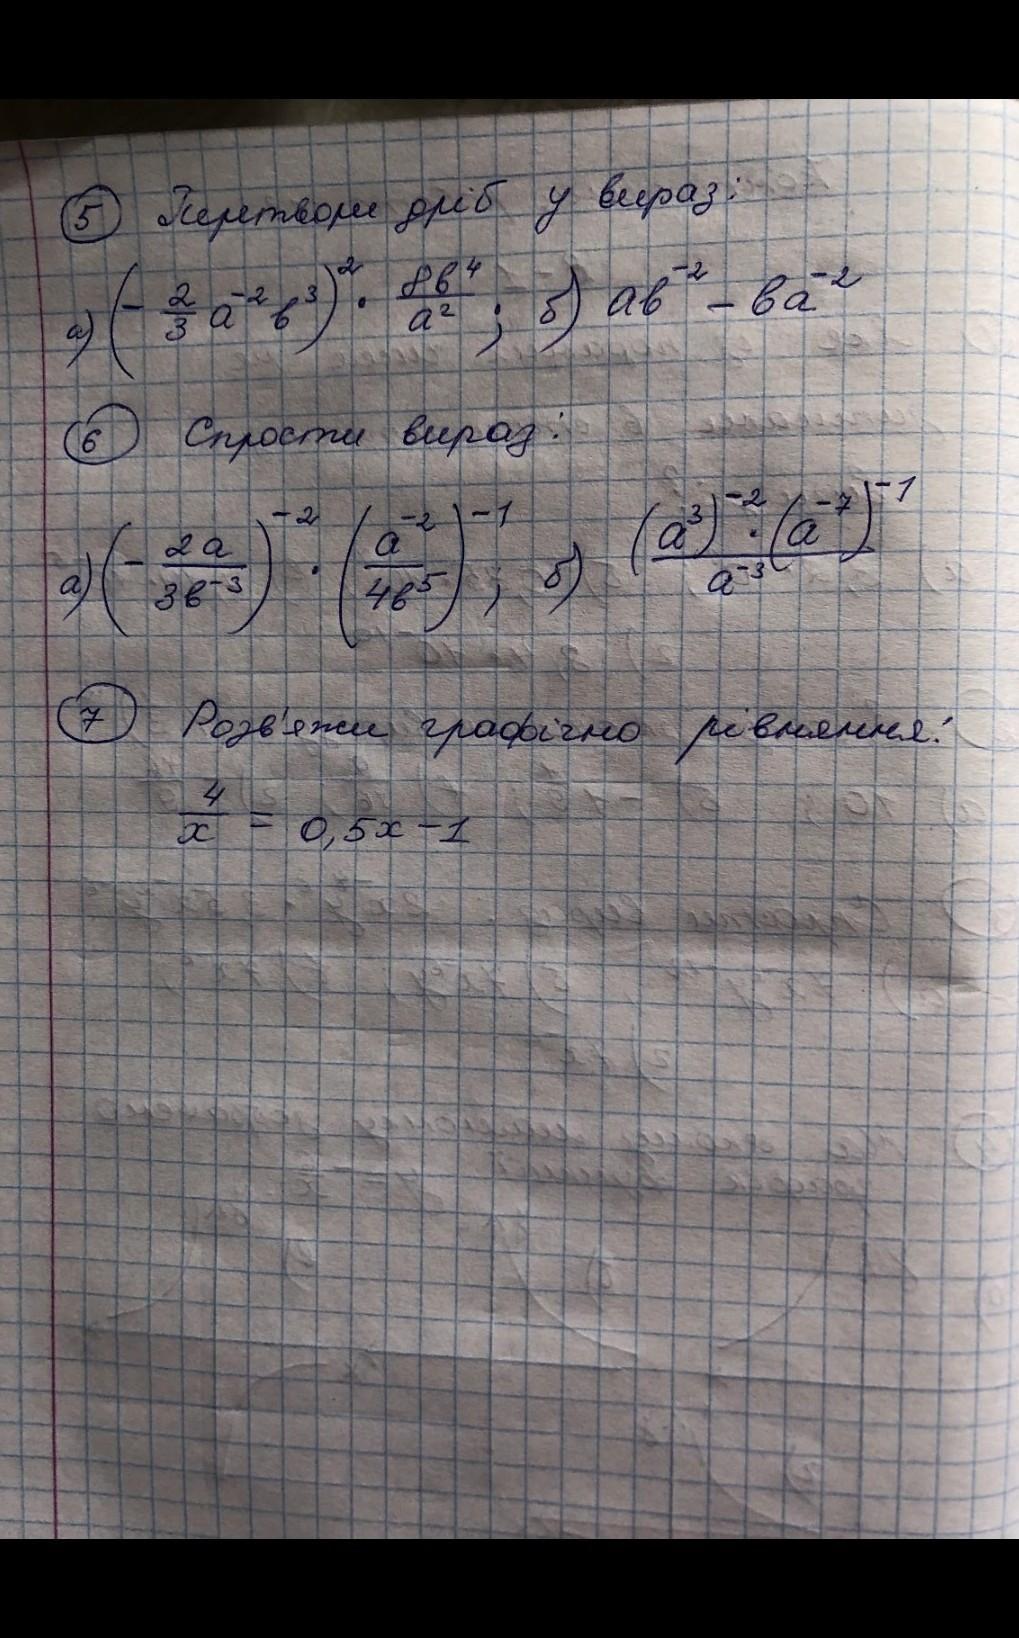 5 Перетвори дріб у вираз:
а) (-2/3 a⁻² b³)² · 8b⁴/a² ; б) ab⁻² - ba⁻²
6 Спрости вираз:
а) (-2a/3b⁻³)⁻² · (a⁻²/4b⁵)⁻¹ ; б) (a³)⁻² · (a⁻⁷)⁻¹/a⁻³
7 Розв'яжи графічно рівняння:
4/x = 0,5x-1